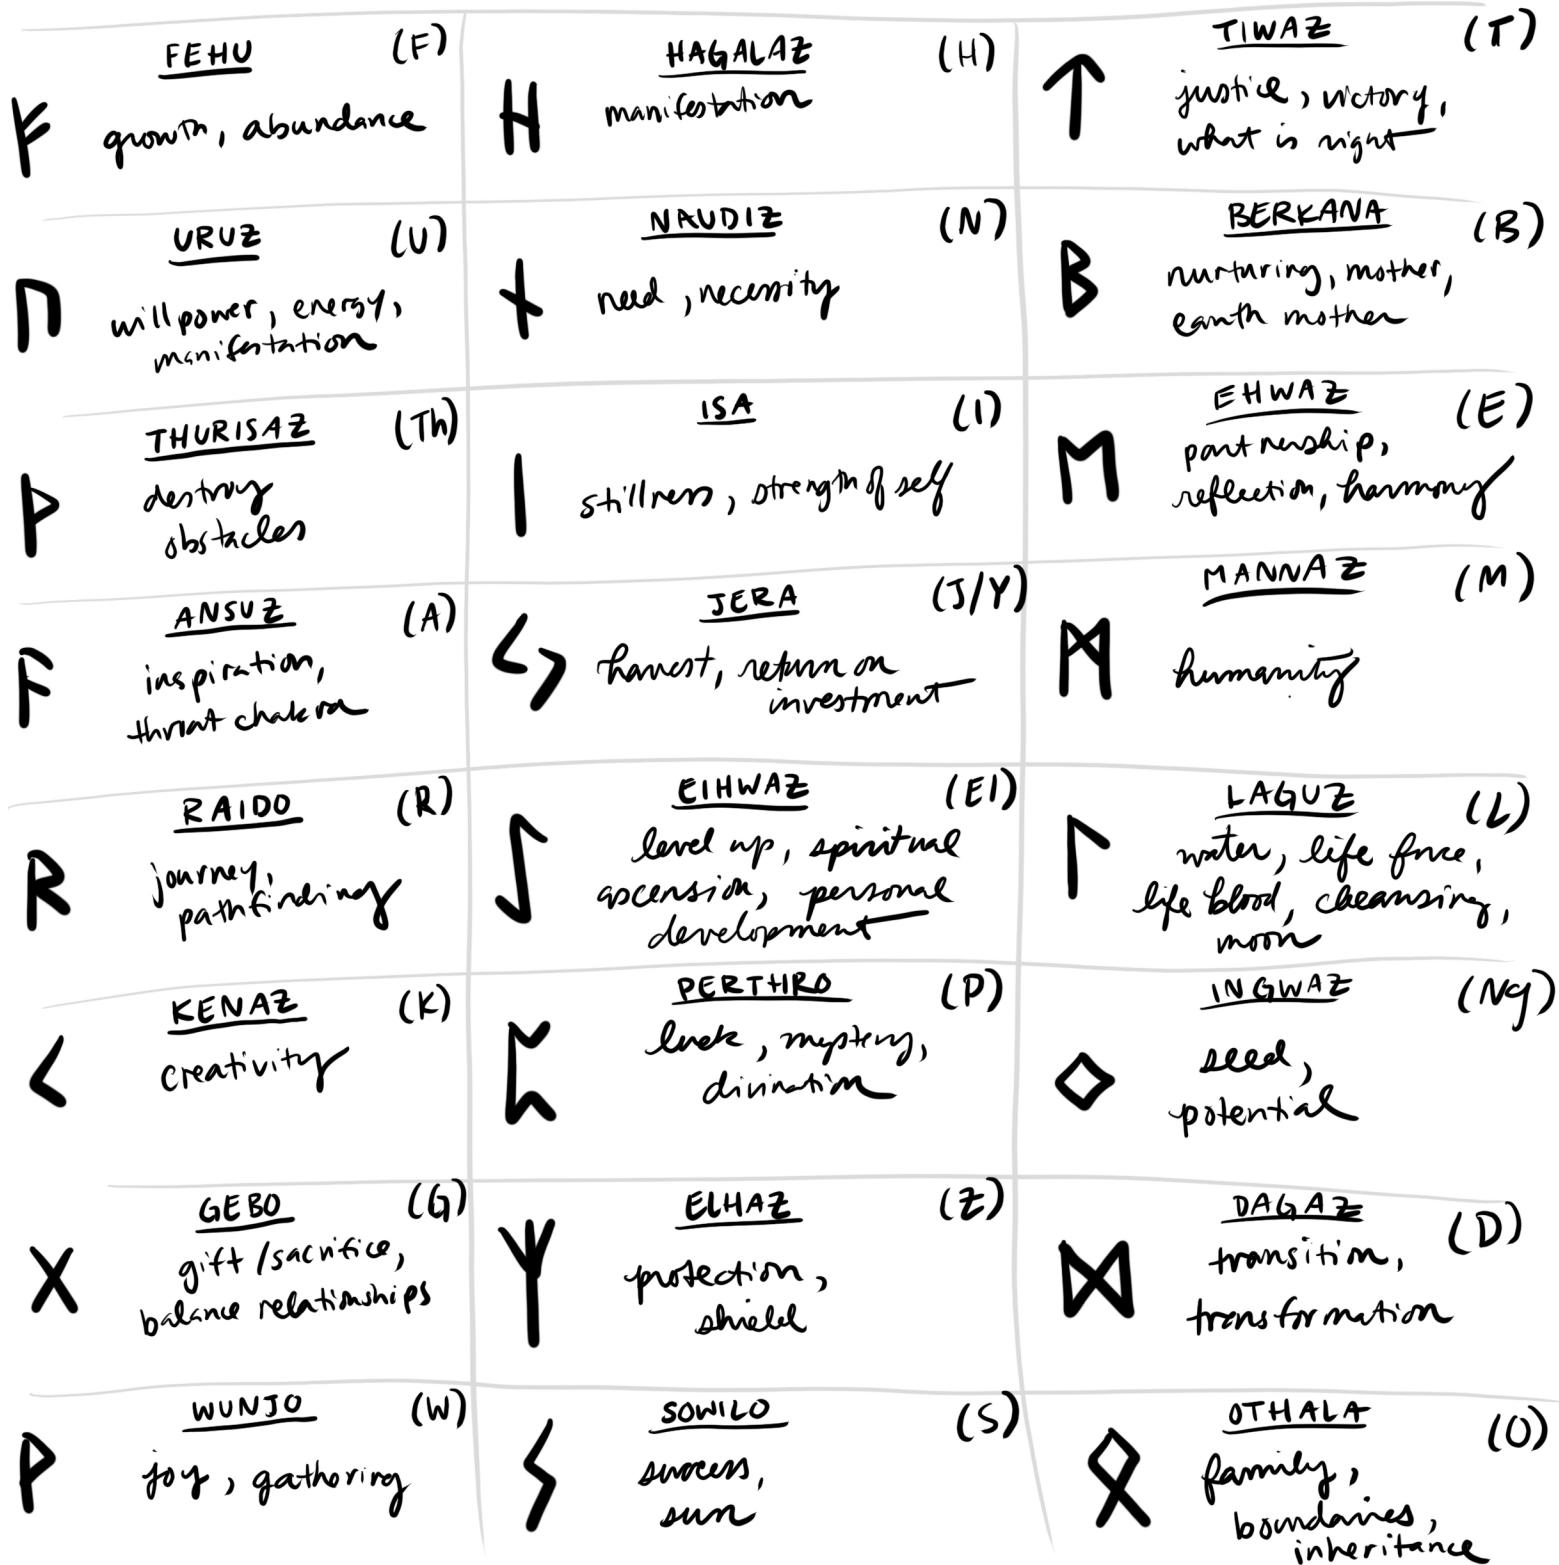 FEHU (F)
ᚠ growth, abundance
URUZ (U)
ᚢ willpower, energy,
manifestation
THURISAZ (Th)
ᚦ destroy
obstacles
ANSUZ (A)
ᚨ inspiration,
throat chakra
RAIDO (R)
ᚱ journey,
pathfinding
KENAZ (K)
ᚲ creativity
GEBO (G)
ᚷ gift/sacrifice,
balance relationships
WUNJO (W)
ᚹ joy, gathering
HAGALAZ (H)
ᚺ manifestation
NAUDIZ (N)
ᚾ need, necessity
ISA (I)
ᛁ stillness, strength of self
JERA (J/Y)
ᛃ harvest, return on
investment
EIHWAZ (EI)
ᛇ level up, spiritual
ascension, personal
development
PERTHRO (P)
ᛈ luck, mystery,
divination
ELHAZ (Z)
ᛉ protection,
shield
SOWILO (S)
ᛊ success,
sun
TIWAZ (T)
ᛏ justice, victory,
what is right
BERKANA (B)
ᛒ nurturing, mother,
earth mother
EHWAZ (E)
ᛖ partnership,
reflection, harmony
MANNAZ (M)
ᛗ humanity
LAGUZ (L)
ᛚ water, life force,
life blood, cleansing,
moon
INGWAZ (Ng)
ᛜ seed,
potential
DAGAZ (D)
ᛞ transition,
transformation
OTHALA (O)
ᛟ family,
boundaries,
inheritance